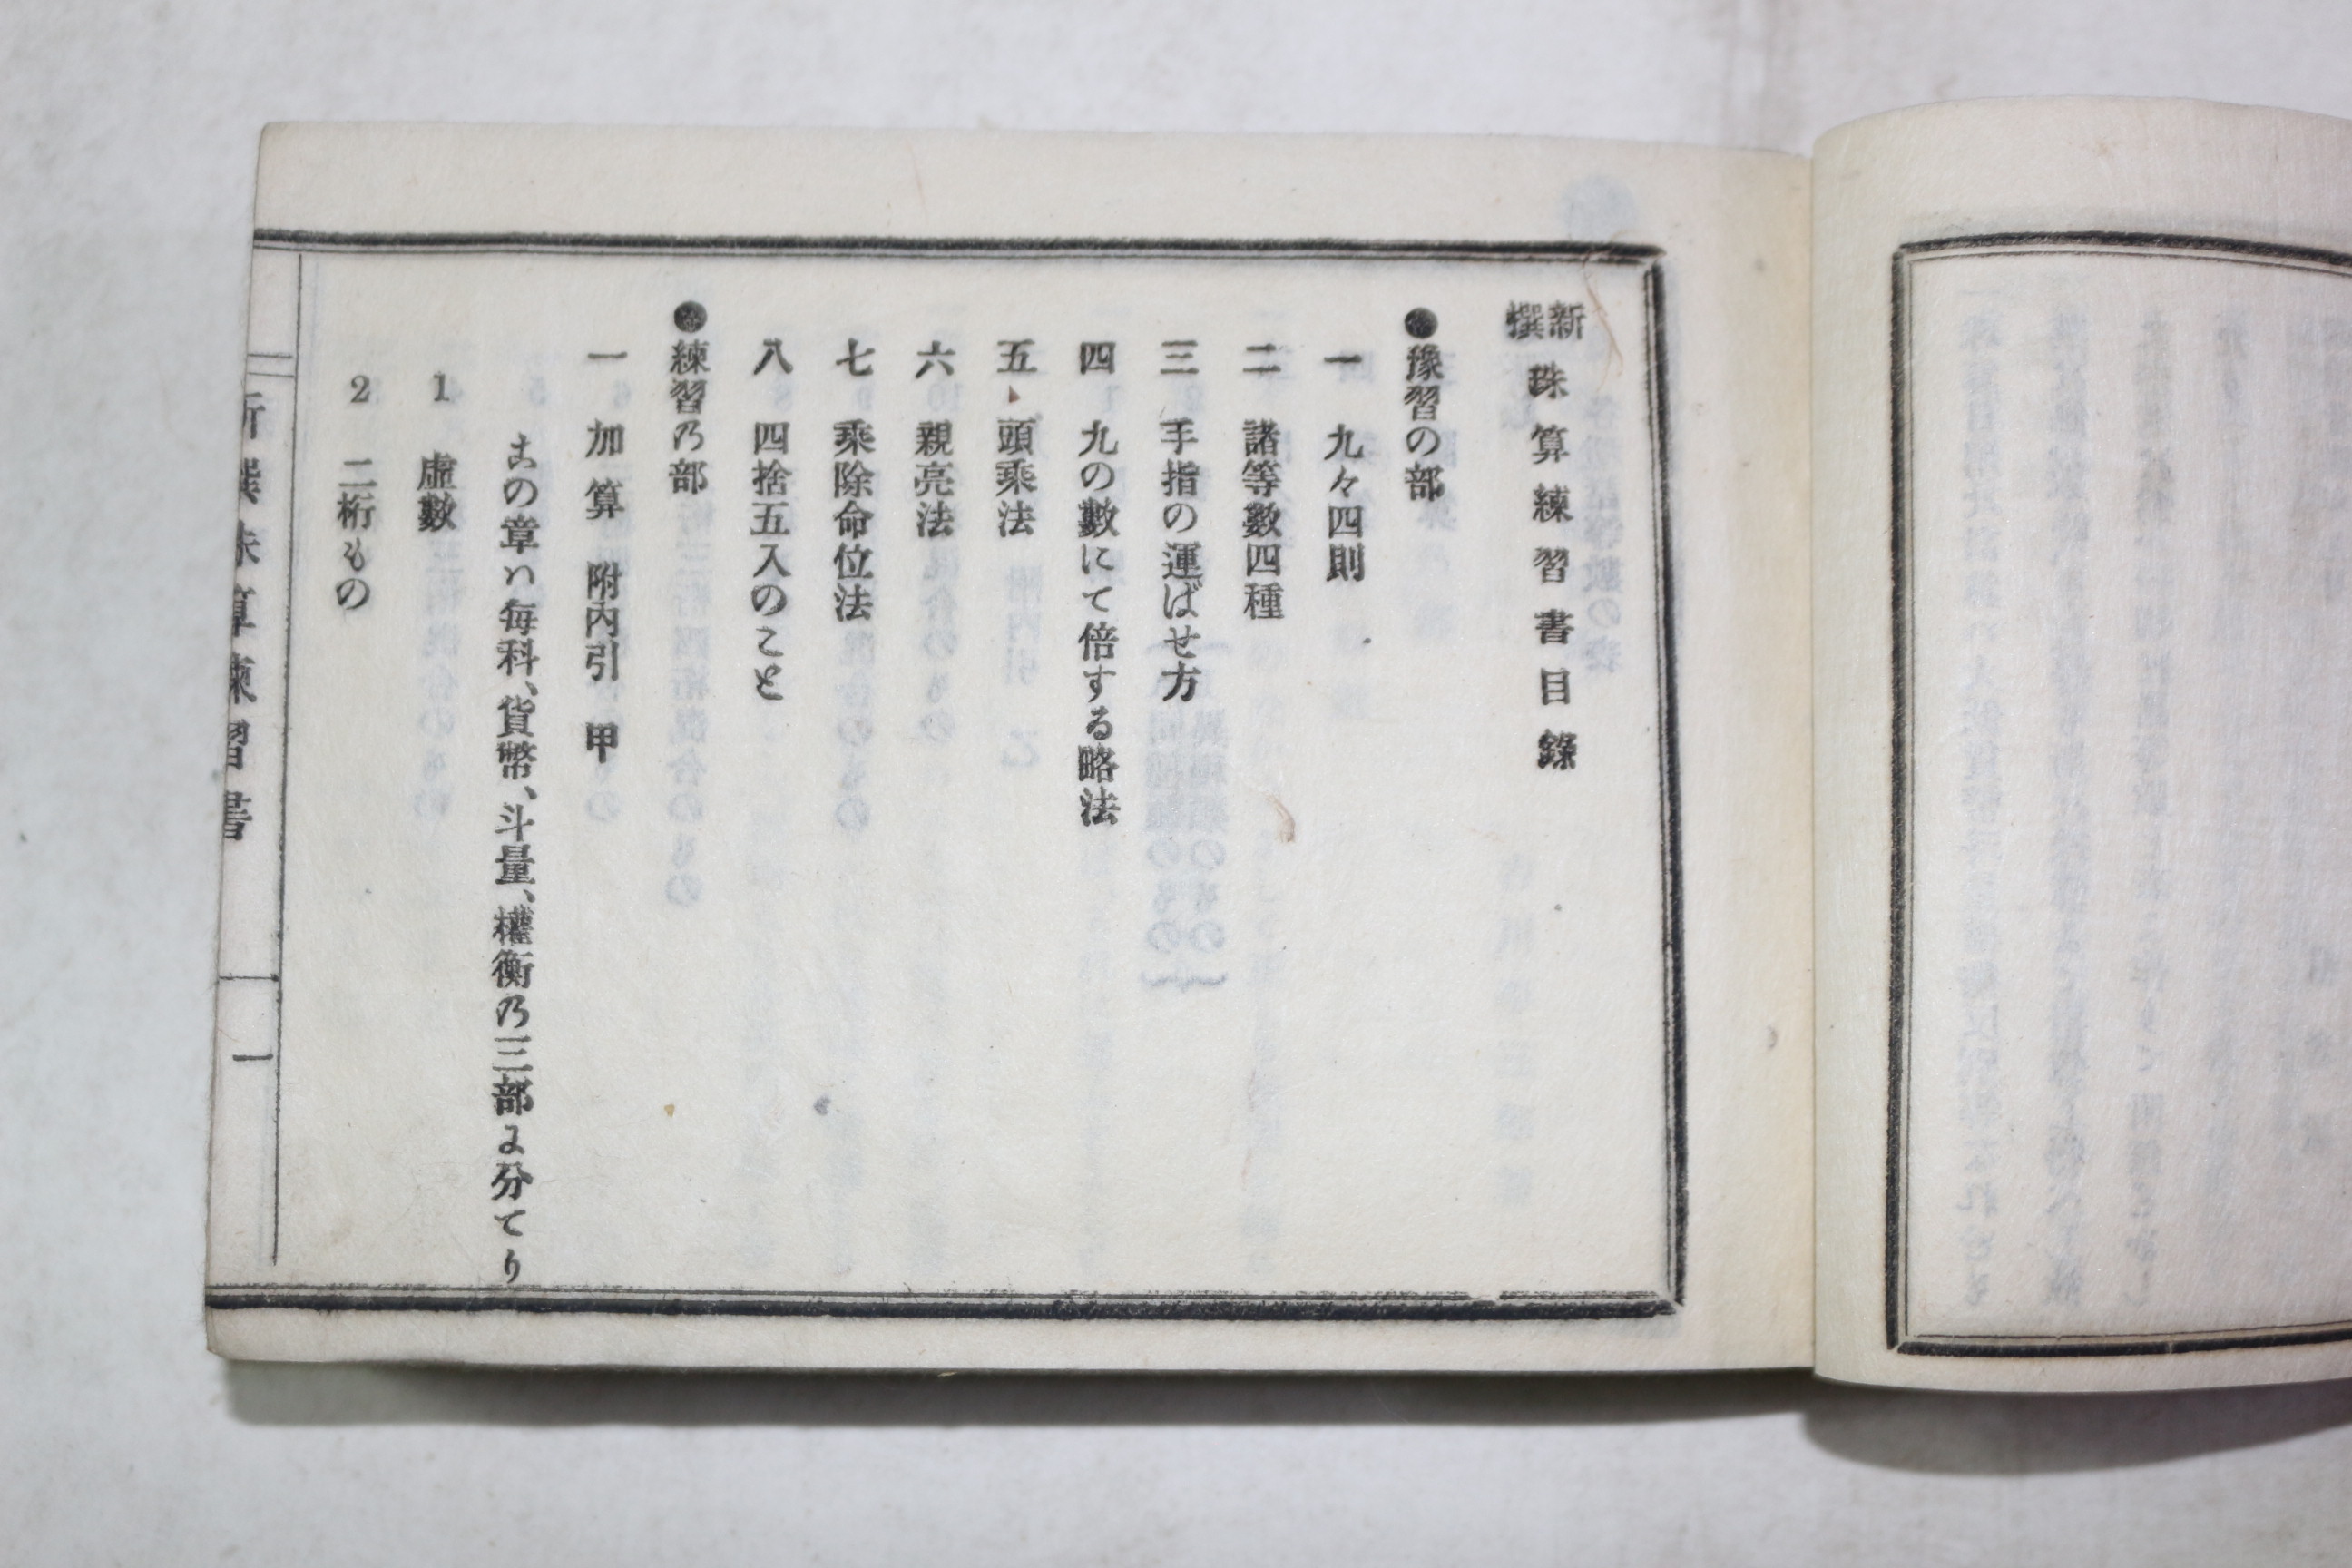 新撰珠算練習書目錄
●豫習の部
一 九々四則
二 諸等數四種
三 手指の運ばせ方
四 九の數にて倍する略法
五 頭乘法
六 親亮法
七 乘除命位法
八 四捨五入のこと
●練習乃部
一 加算 附內引 甲
この章ハ每科、貨幣、斗量、權衡乃三部に分てり
1 虛數
2 二桁もの
新撰珠算練習書 一